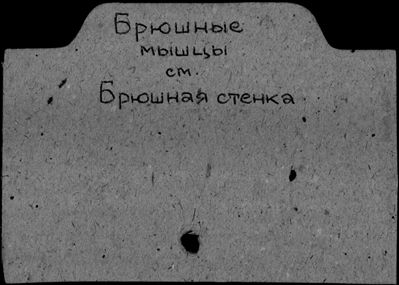 Брюшные
мышцы
см.
Брюшная стенка